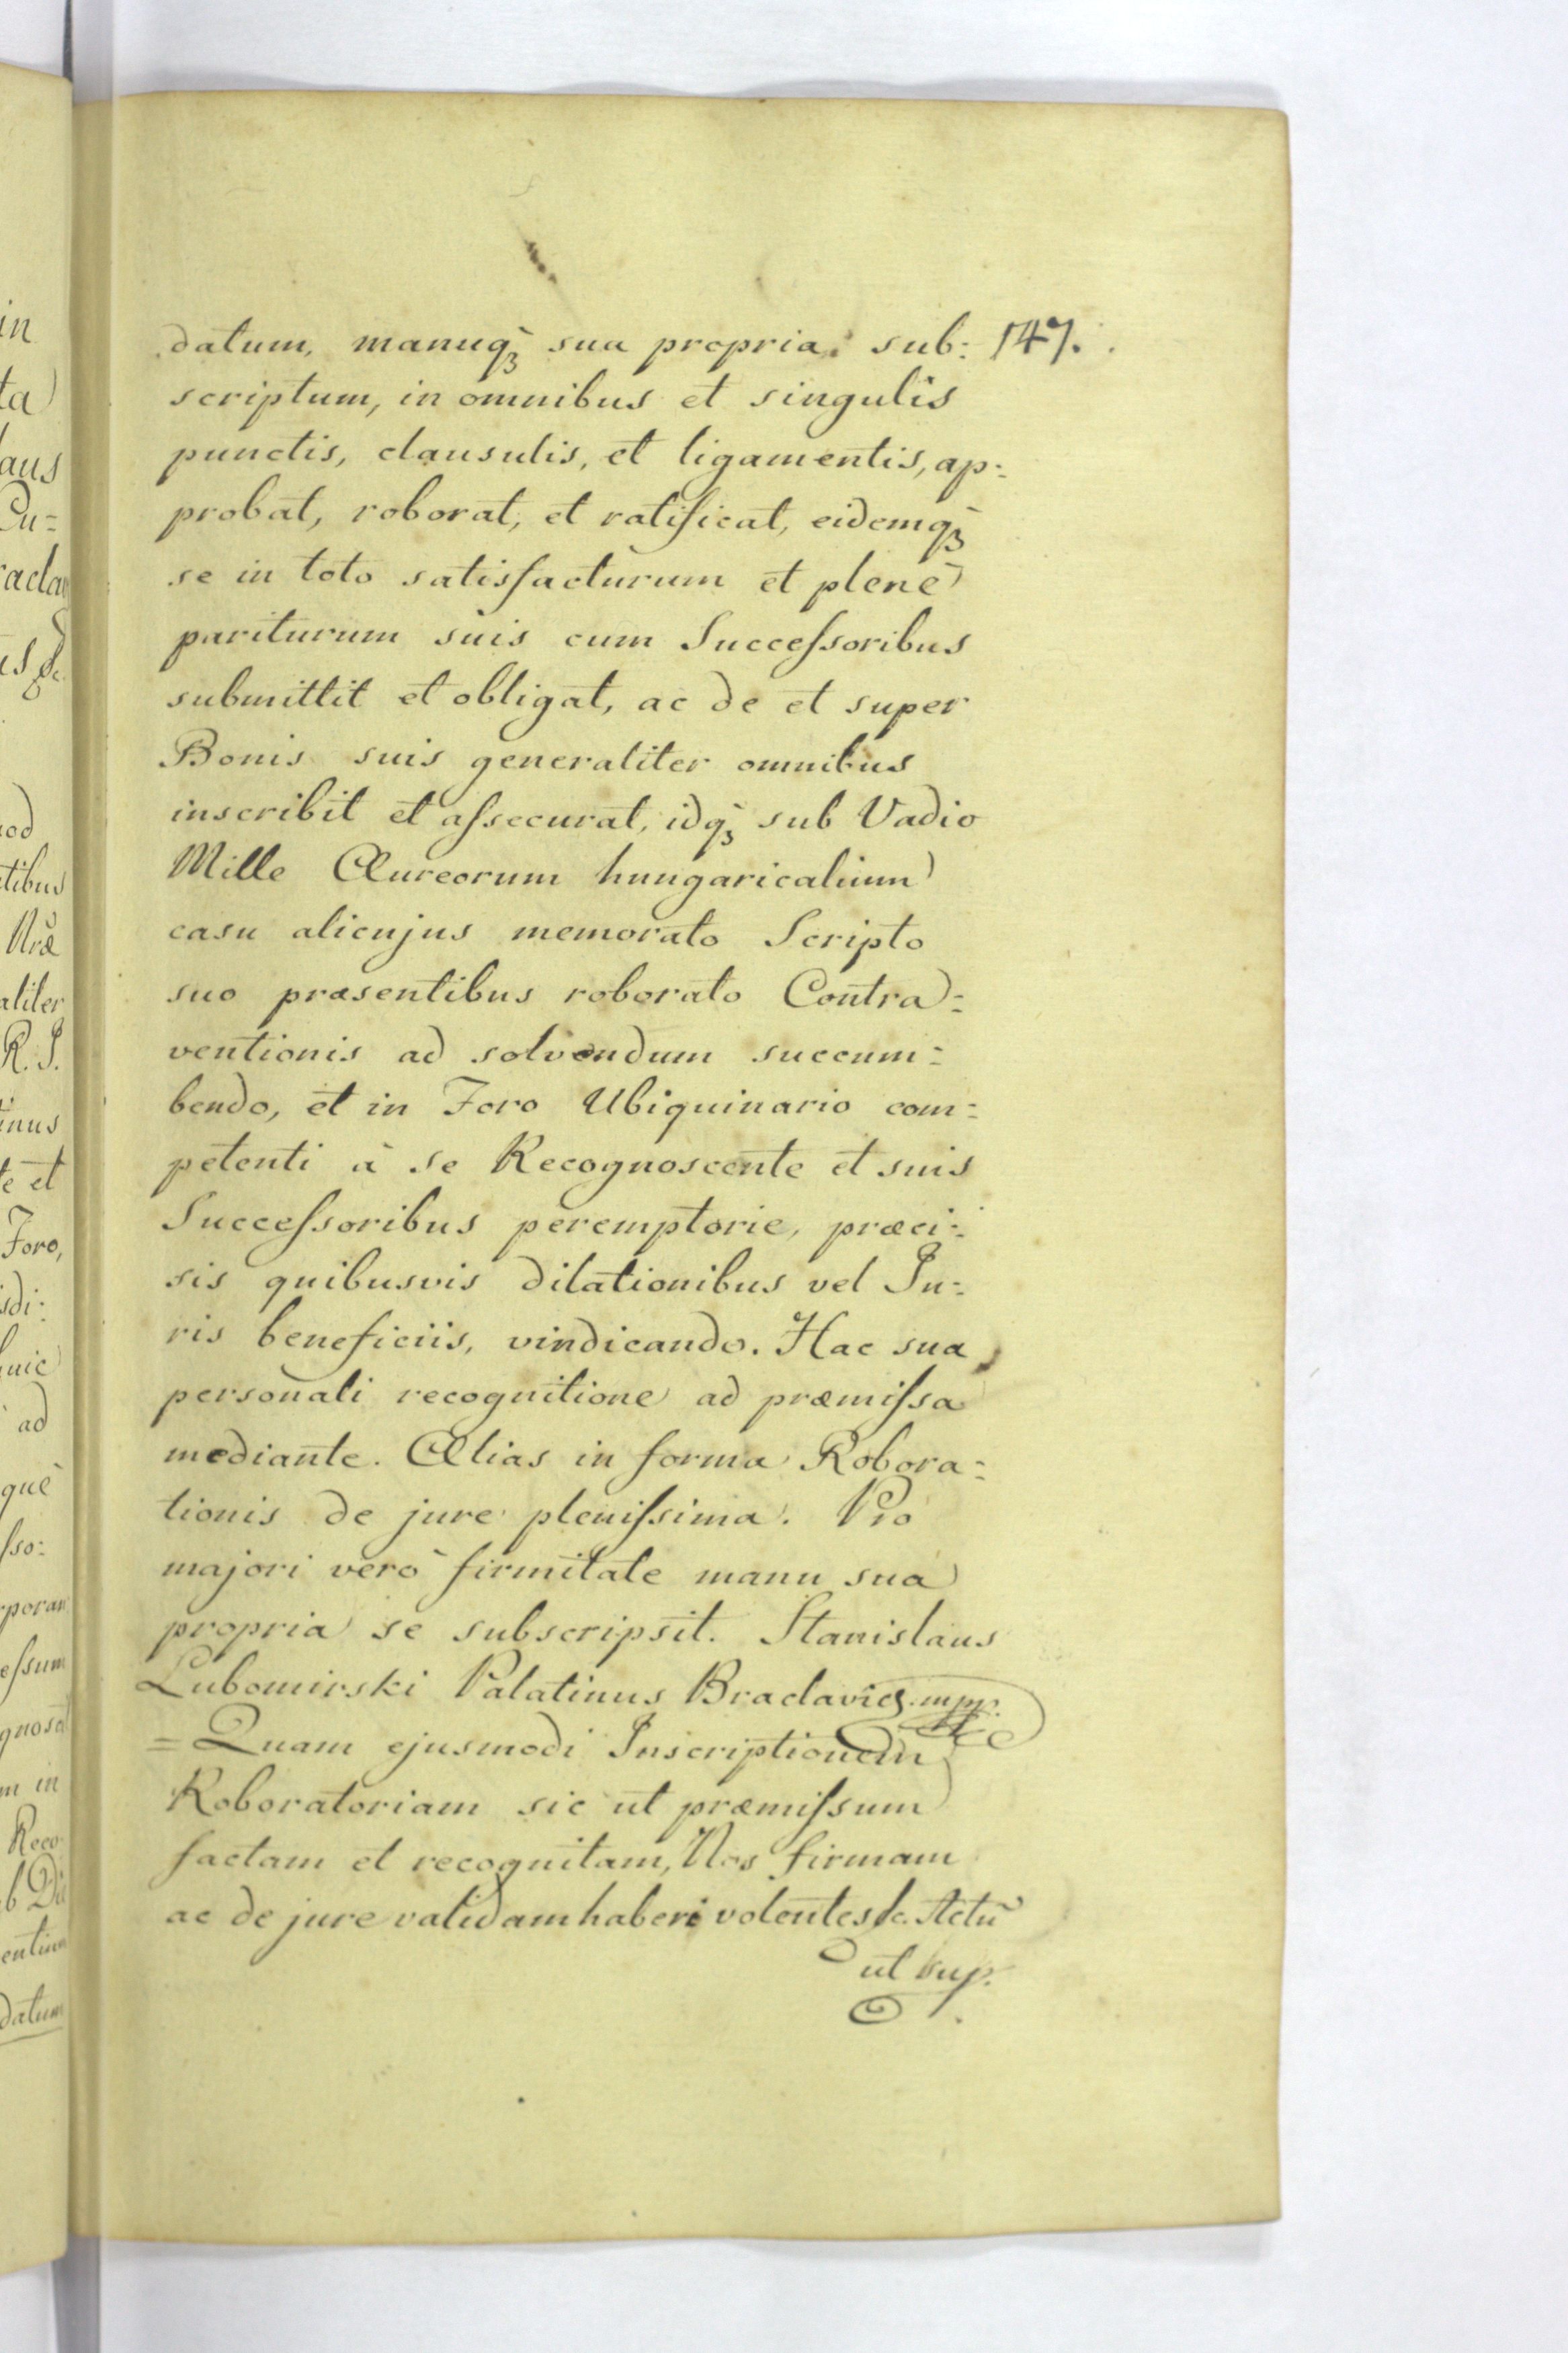 datum, manuq̀ꝫ sua propria sub: 147.
scriptum, in omnibus et singulis
punctis, clausulis, et ligamentis, ap:
probat, roborat, et ratificat, eidemq̀ꝫ
se in toto satisfacturum et plenè
pariturum suis cum Succeſsoribus
submittit et obligat, ac de et super
Bonis suis generaliter omnibus
inscribit et aſsecurat, idq̀ꝫ sub Vadio
Mille Aureorum hungaricalium
casu alicujus memorato Scripto
suo præsentibus roborato Contra:
ventionis ad solvendum succum:
bendo, et in Foro Ubiquinario com:
petenti à se Recognoscente et suis
Succeſsoribus peremptorie, præci:
sis quibusvis dilationibus vel Ju:
ris beneficiis, vindicando. Hac sua
personali recognitione ad præmiſsa
mediante. Alias in forma Robora:
tionis de jure pleniſsima. Pro
majori verò firmitate manu sua
propria se subscripsit. Stanislaus
Lubomirski Palatinus Braclavieñ. mpp.
= Quam ejusmodi Inscriptionem
Roboratoriam sic ut præmiſsum
factam et recognitam, Nos firmam
ac de jure validam haberi volentes &c. Actũ
ut sup.